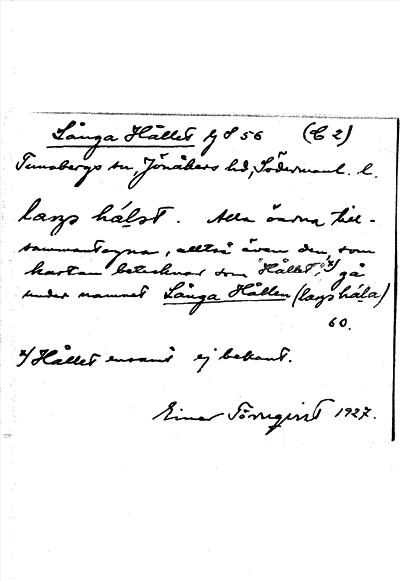 Långa Hållet Gs 56 (C 2)
Tunabergs sn, Jönåkers hd, Södermanl. l.
laŋs hálst. Alla öarna till-
sammantagna, alltså även den, som
kartan betecknar som "Hållet",x) gå
under namnet Långa Hållen (laŋs hála)
60.
x/ Hållet ensamt ej bekant.
Einar Törnqvist 1927.